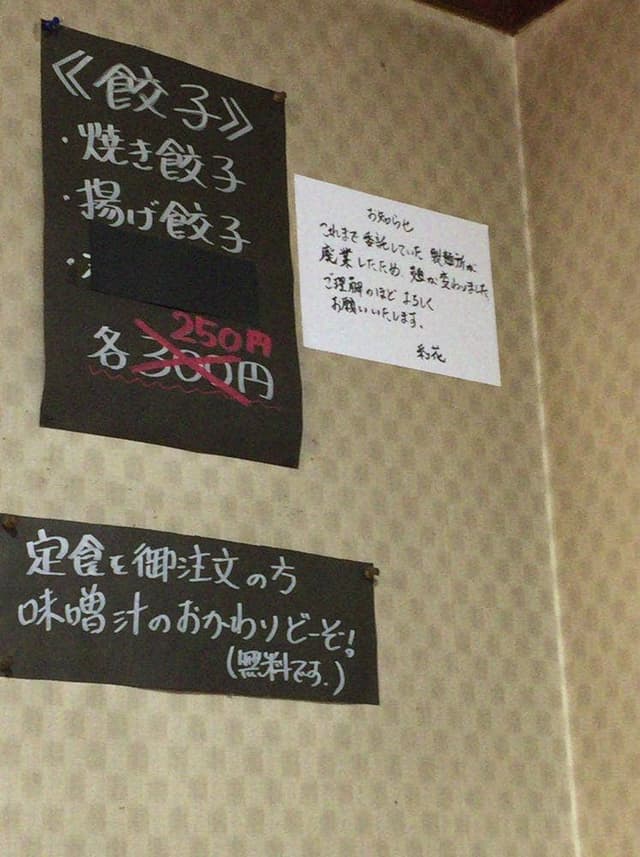 《餃子》
・焼き餃子
・揚げ餃子
・
250円
各300円
お知らせ
これまで委託していた製麺所が
廃業したため、麺が変わりました。
ご理解のほどよろしく
お願いいたします。
彩花
定食を御注文の方
味噌汁のおかわりどーぞ!
(無料です。)